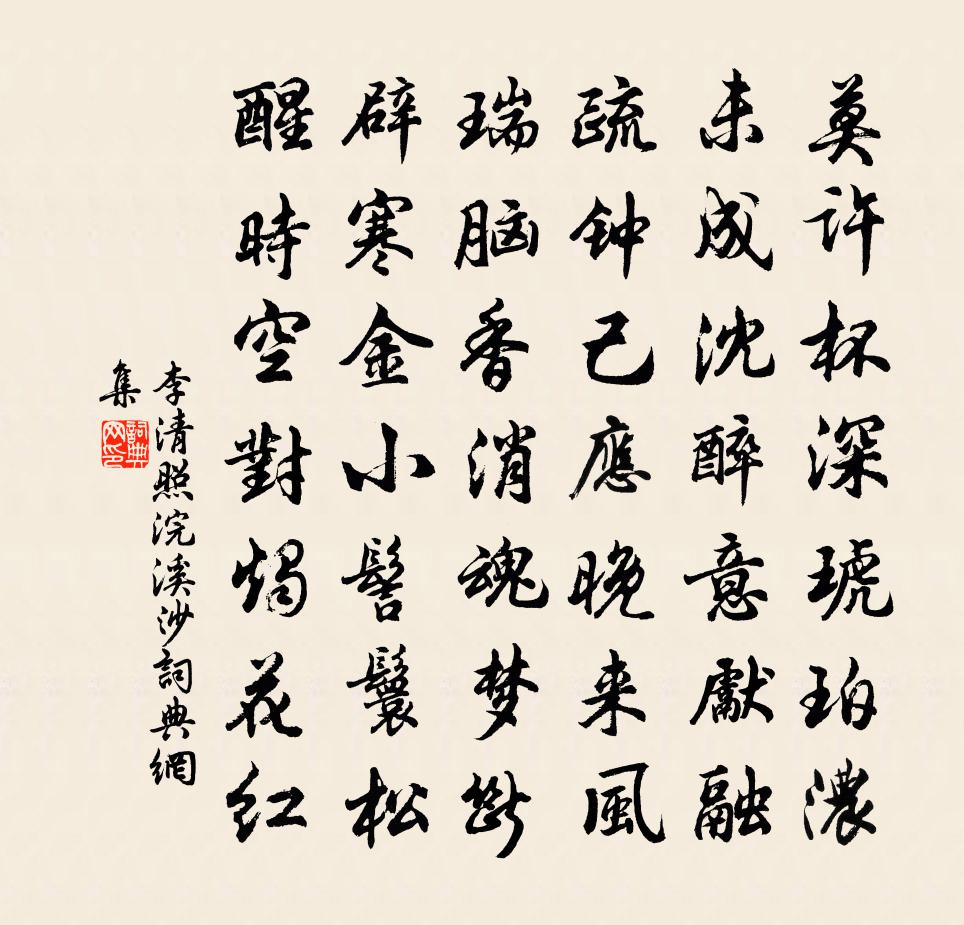 莫许杯深琥珀濃
未成沈醉意獻融
疏钟己應晚来風
瑞脑香消魂梦斷
辟寒金小髻鬟松
醒時空對燭花红
李清照浣溪沙詞典網
集
詞典
网印